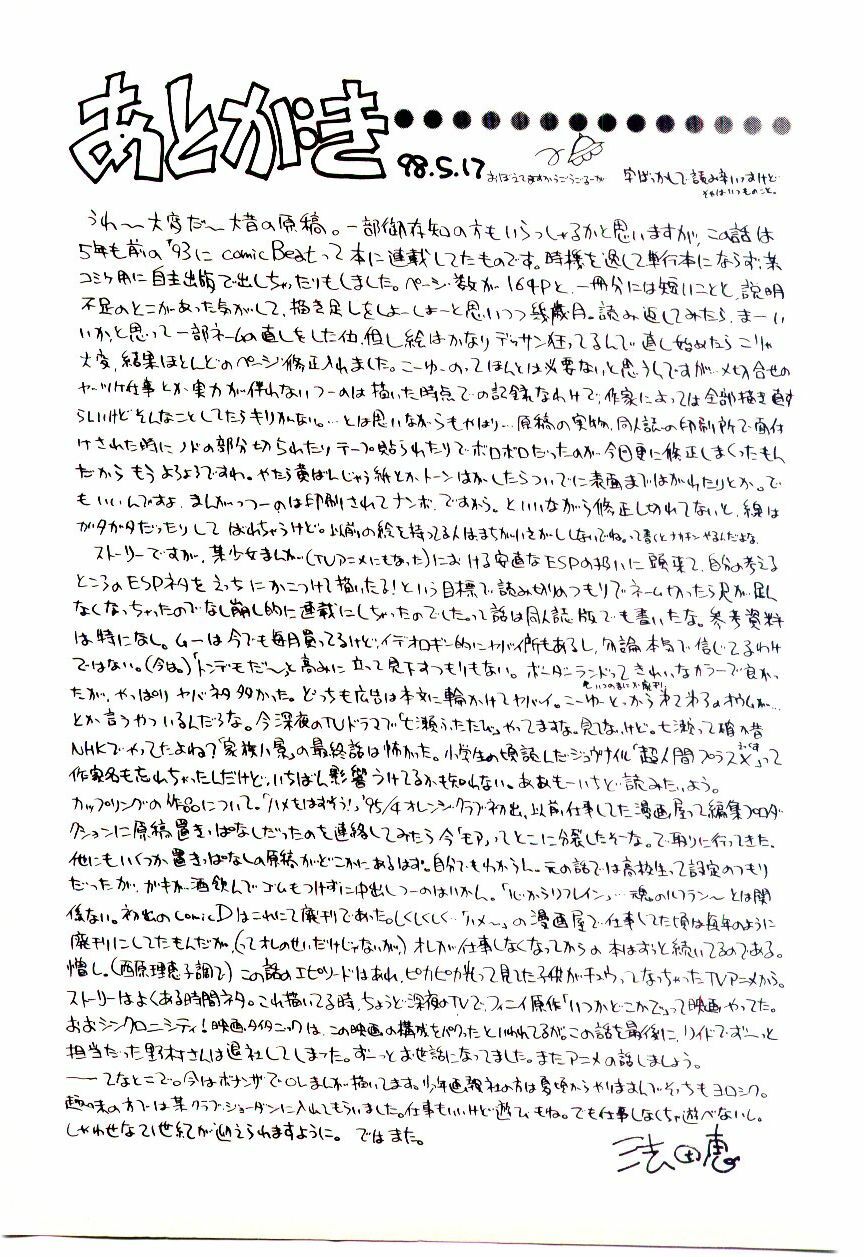 あとがき
98.5.17 おぼえてますかうごうごるーが 字ばっかしで読み辛いっすけど
それはいつものこと。
うわ〜大変だ〜大昔の原稿。一部御存知の方もいらっしゃるかと思いますが、この話は
5年も前の'93にcomic Beatって本に連載してたものです。時機を逸して単行本にならず、某
コミケ用に自主出版で出しちゃったりもしました。ページ数が164Pと、一冊分には短いことと、説明
不足のとこがあった気がして、描き足しをしよーしよーと思いつつ幾歳月。読み返してみたら、まーい
いかと思って一部ネームの直しをした他、但し絵はかなりデッサン狂ってるんで直し始めたらこりゃ
大変、結果ほとんどのページ修正入れました。こーゆーのってほんとは必要ないと思うんですが…〆切合せの
ヤッツケ仕事とか実力が伴わないつーのは描いた時点での記録なわけで、作家によっては全部描き直す
らしいけどそんなことしてたらキリがない。…とは思いながらもやはり…原稿の実物、同人誌の印刷所で面付
けされた時にノドの部分切られたりテープ貼られたりでボロボロだったのが今回更に修正しまくったもん
だからもうよろよろですわ。やたら黄ばんじゃう紙とか、トーンはがしたらついでに表面まではがれたりとか。で
もいいんですよ、まんがっつーのは印刷されてナンボ、ですから。といいながら修正し切れてないと、線は
ガタガタだったりしてばれちゃうけど。以前の絵を持ってる人はまちがいさがししないでね。って書くとナカキンやるんだよな。
ストーリーですが、某少女まんが(TVアニメにもなった)における安直なESPの扱いに頭来て、自分の考える
ところのESPネタをえっちにかこつけて描いたる!という目標で読み切りのつもりでネーム切ったら尺が足ん
なくなっちゃったのでなし崩し的に連載にしちゃったのでした。って話は同人誌版でも書いたな。参考資料
は特になし。ムーは今でも毎月買ってるけど、イデオロギー的にヤバイ所もあるし、勿論本気で信じてるわけ
ではない。(今は。)「トンデモだ〜」と高みに立って見下すつもりもない。ボーダーランドってきれいなカラーで良かっ
も、いつのまにか廃刊。
たが、やっぱりヤバネタ多かった。どっちも広告は本文に輪かけてヤバイ。こーゆーとっから第2第3のオウムが…
とか言うやついるんだろな。今深夜のTVドラマで「七瀬ふたたび」やってますな。見てないけど。七瀬って確か昔
NHKでやってたよね?「家族八景」の最終話は怖かった。小学生の頃読したジュヴナイル「超人間プラスX」って
作家名も忘れちゃったしだけど、いちばん影響うけてるかも知れない。ああもーいちど読みたいよう。
カップリングの作品について。「ハメをはずそう!」'95/4オレンジクラブ初出、以前仕事してた漫画屋って編集プロダ
クションに原稿置きっぱなしだったのを連絡してみたら今「モア」ってとこに分裂したそーな。で取りに行ってきた。
他にもいくつか置きっぱなしの原稿がどこかにあるはず。自分でもわからん。元の話では高校生って設定のつもり
だったが、ガキが酒飲んでゴムもつけずに中出しつーのはいかん。「心からリフレイン」…魂のルフラン〜とは関
係ない。初出のcomic Dはこれにて廃刊であった。しくしくしく…「ハメ〜」の漫画屋で仕事してた頃は毎年のように
廃刊にしてたもんだが、(ってオレのせいだけじゃないが)オレが仕事しなくなってからの本はずっと続いてるのである。
憎し。(西原理恵子調で)この話のエピソードはあれ、ピカピカ光って見てた子供がチュウってなっちゃったTVアニメから。
ストーリーはよくある時間ネタ。これ描いてる時、ちょうど深夜のTVで、フィニイ原作「いつかどこかで」って映画やってた。
おおシンクロニシティ!映画タイタニックは、この映画の構成をパクったといわれてるが。この話を最後に、リイドでず〜っと
担当だった野村さんは退社してしまった。ずーっとお世話になってました。またアニメの話しましょう。
――てなとこで。今はボナンザでOLまんが描いてます。少年画報社の方は夏頃からやりますんでそっちもヨロシク。
趣味の方では某クラブ・ジョーダンに入れてもらいました。仕事もいいけど遊びもね。でも仕事しなくちゃ遊べないし。
しあわせな21世紀が迎えられますように。ではまた。
法田恵